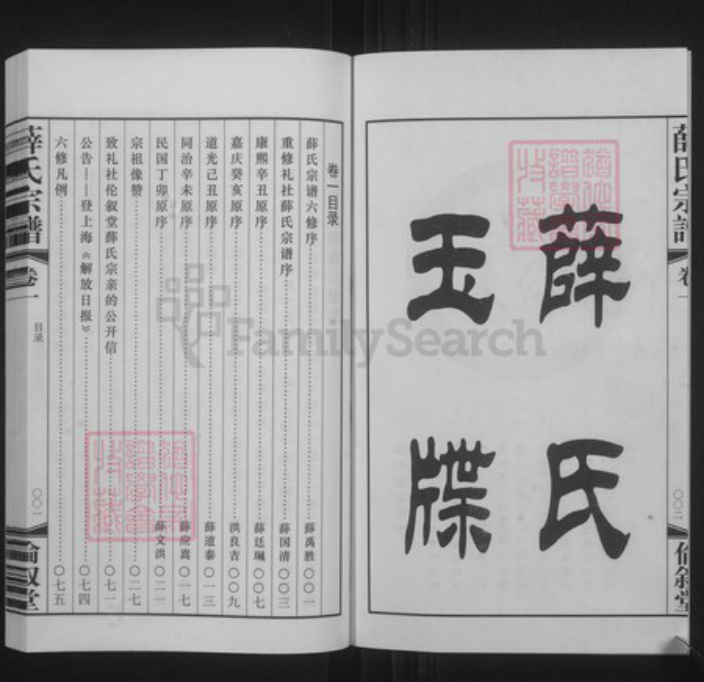 薛氏
玉牒
薛氏宗譜
卷一
倫敘堂
卷一目录
薛氏宗谱六修序 薛禹胜 〇〇一
重修礼社薛氏宗谱序 薛国清 〇〇三
康熙辛丑原序 薛廷珮 〇〇七
嘉庆癸亥原序 洪良吉 〇〇九
道光己丑原序 薛道泰 〇一三
同治辛未原序 薛应嵩 〇一七
民国丁卯原序 薛文洪 〇二一
宗祖像赞 〇二七
致礼社伦叙堂薛氏宗亲的公开信 〇七一
公告——登上海《解放日报》 〇七四
六修凡例 〇七五
薛氏宗譜
卷一
目录
〇〇一
倫敘堂
FamilySearch